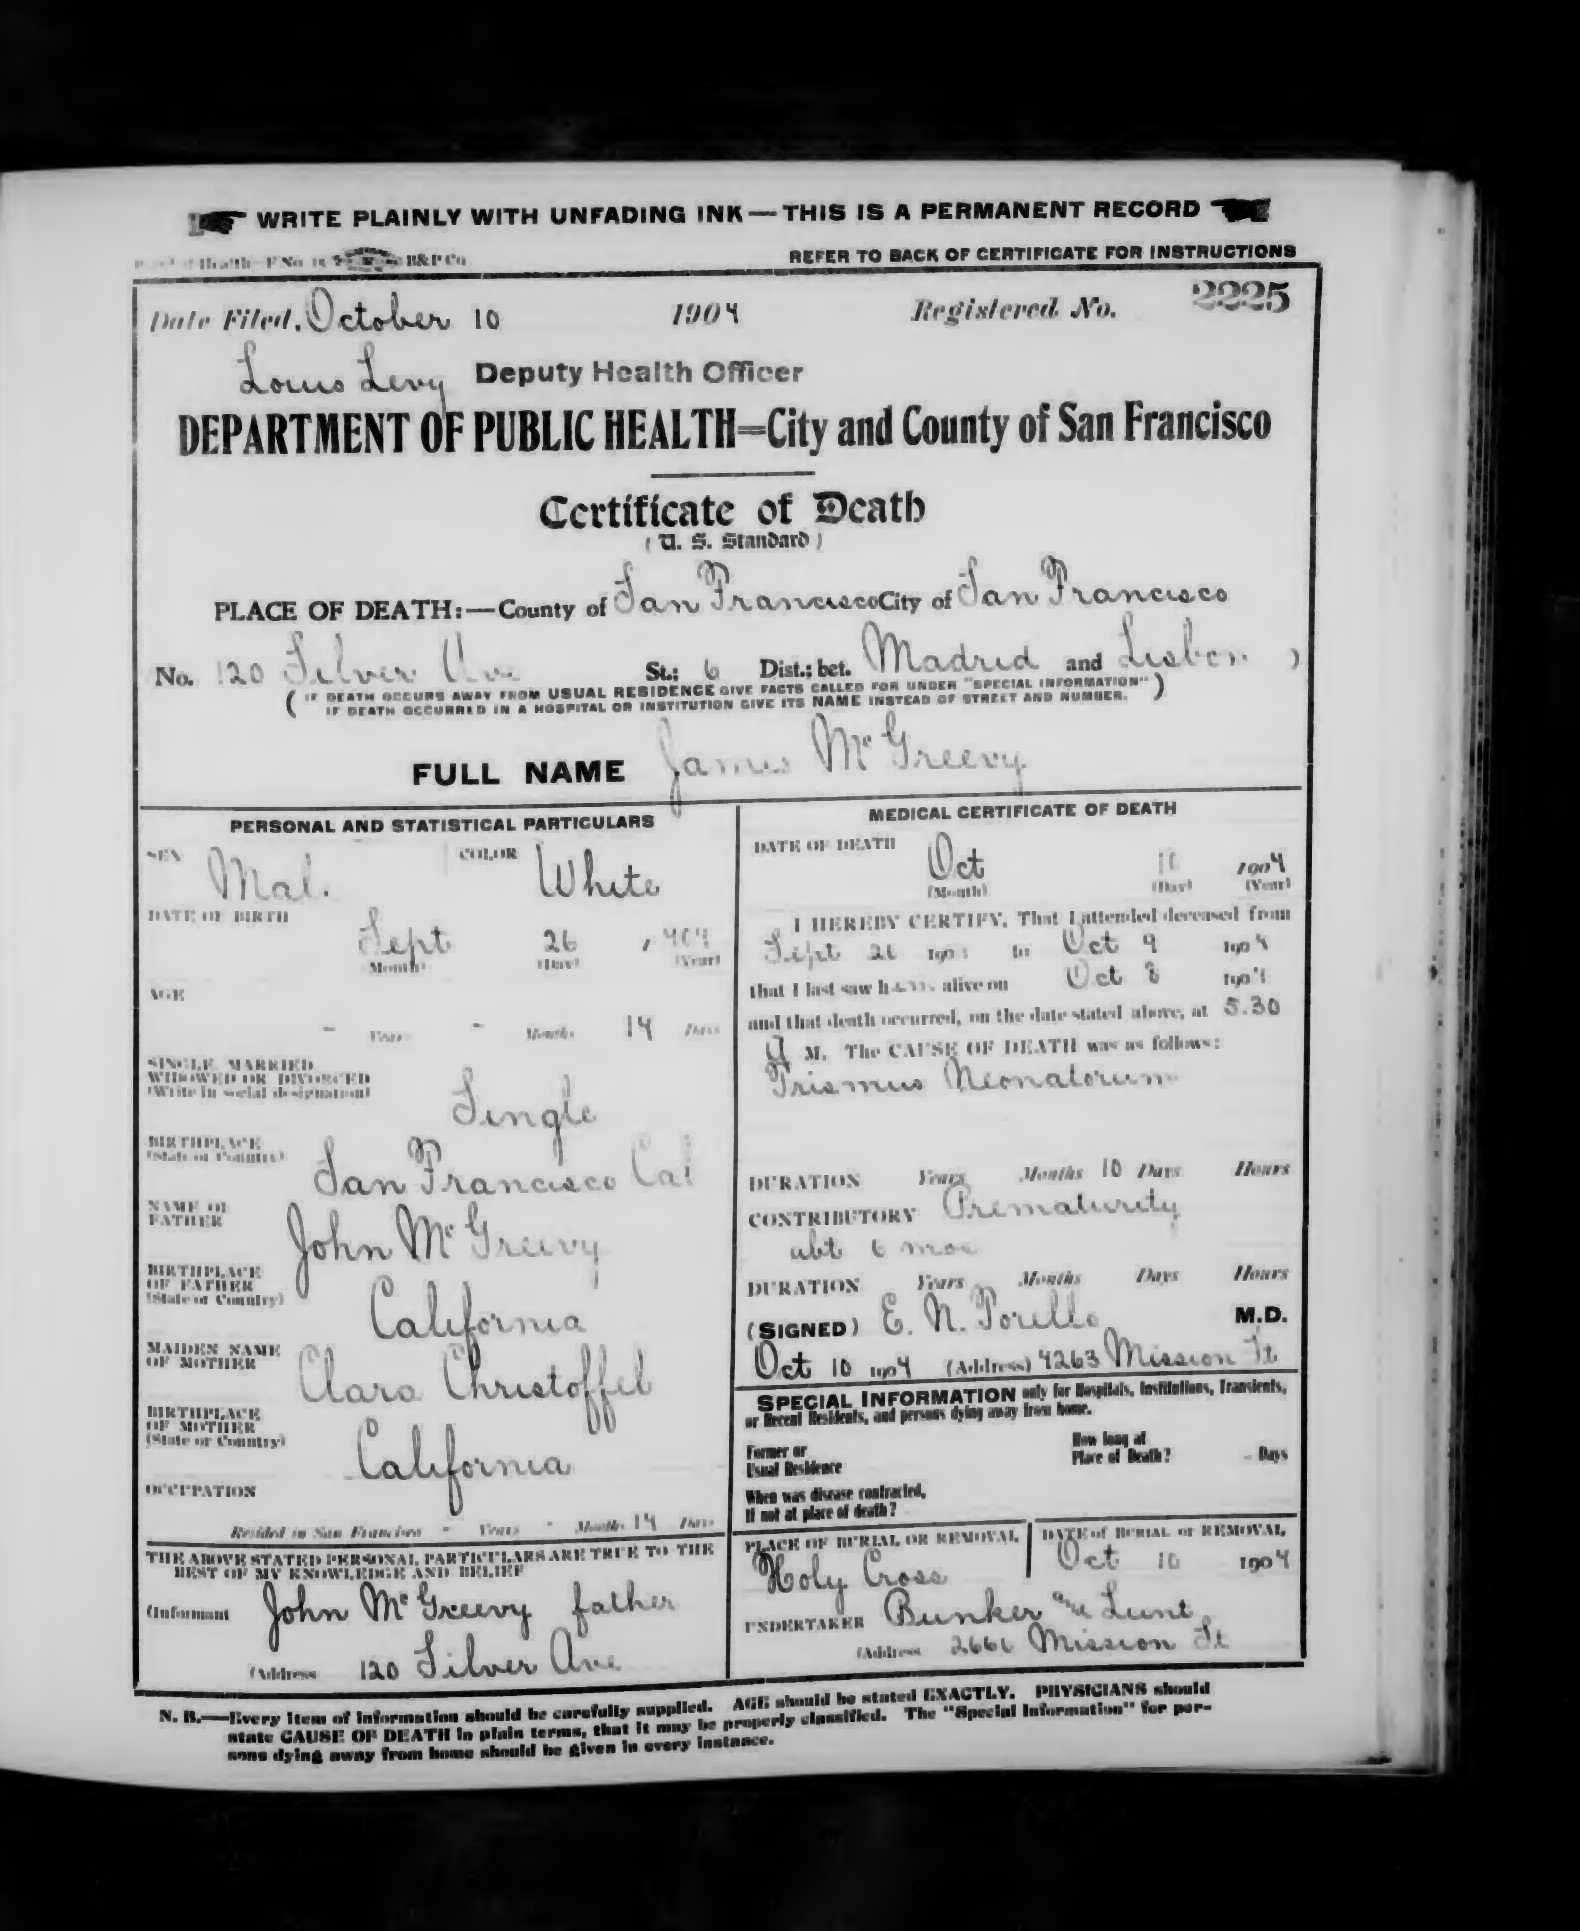 WRITE PLAINLY WITH UNFADING INK — THIS IS A PERMANENT RECORD
of Health—F No. 15 B&P Co REFER TO BACK OF CERTIFICATE FOR INSTRUCTIONS
Date Filed, October 10 1904 Registered No. 2225
Louis Levy Deputy Health Officer
DEPARTMENT OF PUBLIC HEALTH=City and County of San Francisco
Certificate of Death
(U. S. Standard)
PLACE OF DEATH:—County of San Francisco City of San Francisco
No. 120 Silver Ave St.; 6 Dist.; bet. Madrid and Lisbon )
( IF DEATH OCCURS AWAY FROM USUAL RESIDENCE GIVE FACTS CALLED FOR UNDER "SPECIAL INFORMATION" )
IF DEATH OCCURRED IN A HOSPITAL OR INSTITUTION GIVE ITS NAME INSTEAD OF STREET AND NUMBER.
FULL NAME James McGreevy
PERSONAL AND STATISTICAL PARTICULARS
SEX Mal. COLOR White
DATE OF BIRTH
Sept 26 , 904
(Month) (Day) (Year)
AGE
- Years - Months 14 Days
SINGLE, MARRIED
WIDOWED OR DIVORCED
(Write in social designation)
Single
BIRTHPLACE
(State or Country)
San Francisco Cal
NAME OF
FATHER
John McGreevy
BIRTHPLACE
OF FATHER
(State or Country)
California
MAIDEN NAME
OF MOTHER
Clara Christoffel
BIRTHPLACE
OF MOTHER
(State or Country)
California
OCCUPATION
Resided in San Francisco - Years - Months 14 Days
THE ABOVE STATED PERSONAL PARTICULARS ARE TRUE TO THE
BEST OF MY KNOWLEDGE AND BELIEF
(Informant John McGreevy father
(Address 120 Silver Ave
MEDICAL CERTIFICATE OF DEATH
DATE OF DEATH
Oct 10 1904
(Month) (Day) (Year)
I HEREBY CERTIFY, That I attended deceased from
Sept 26 1904 to Oct 9 1904
that I last saw him alive on Oct 8 1904
and that death occurred, on the date stated above, at 5.30
A M. The CAUSE OF DEATH was as follows:
Trismus Neonatorum
DURATION Years Months 10 Days Hours
CONTRIBUTORY Prematurity
abt 6 mos
DURATION Years Months Days Hours
(SIGNED) E. N. Torello M.D.
Oct 10 1904 (Address) 4263 Mission St
SPECIAL INFORMATION only for Hospitals, Institutions, Transients,
or Recent Residents, and persons dying away from home.
Former or
Usual Residence
How long at
Place of Death? - Days
When was disease contracted,
If not at place of death?
PLACE OF BURIAL OR REMOVAL
Holy Cross
DATE of BURIAL or REMOVAL
Oct 10 1904
UNDERTAKER Bunker and Lunt
(Address 2666 Mission St
N. B.—Every item of information should be carefully supplied. AGE should be stated EXACTLY. PHYSICIANS should
state CAUSE OF DEATH in plain terms, that it may be properly classified. The "Special Information" for per-
sons dying away from home should be given in every instance.